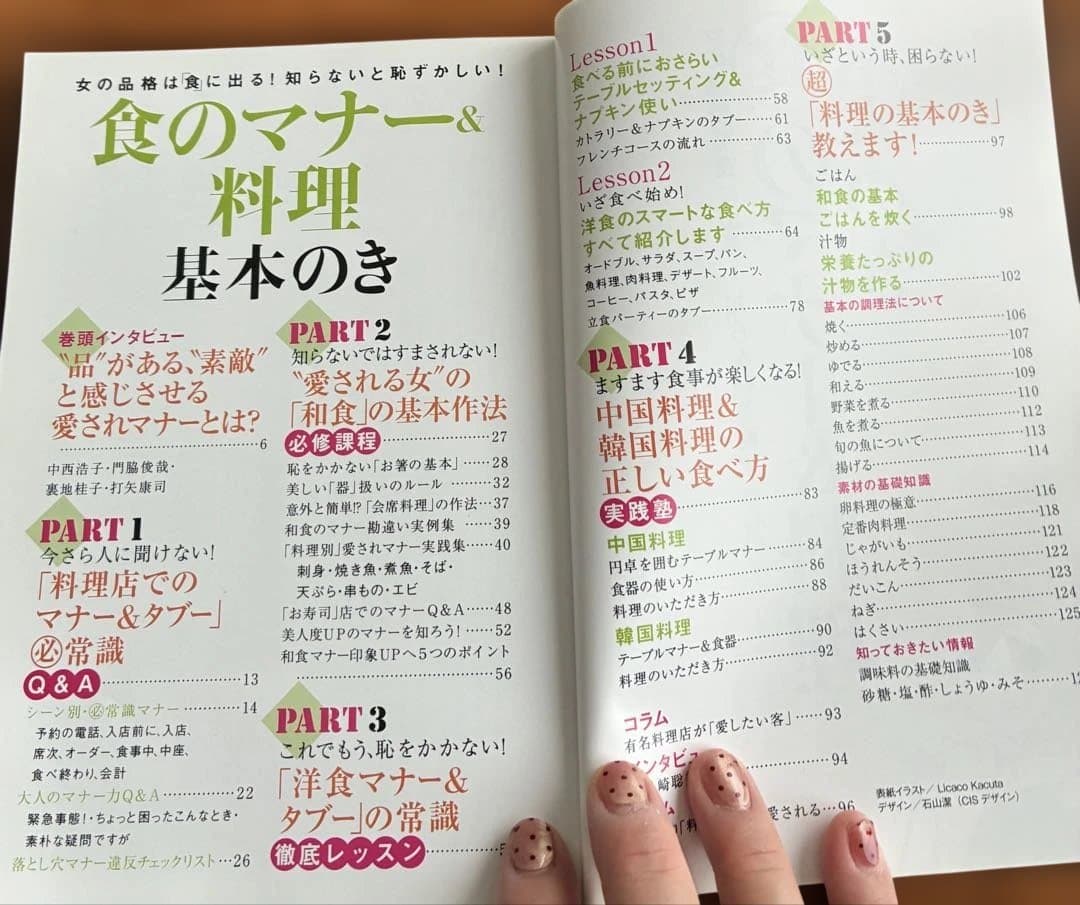 女の品格は「食」に出る!知らないと恥ずかしい!
食のマナー&
料理
基本のき
巻頭インタビュー
“品”がある、“素敵”
と感じさせる
愛されマナーとは?
……6
中西浩子・門脇俊哉・
裏地桂子・打矢康司
PART 1
今さら人に聞けない!
「料理店での
マナー&タブー」
㊙常識
Q&A……13
シーン別・必常識マナー……14
予約の電話、入店前に、入店、
席次、オーダー、食事中、中座、
食べ終わり、会計
大人のマナー力Q&A……22
緊急事態!・ちょっと困ったこんなとき・
素朴な疑問ですが
落とし穴マナー違反チェックリスト…26
PART 2
知らないではすまされない!
“愛される女”の
「和食」の基本作法
必修課程……27
恥をかかない「お箸の基本」……28
美しい「器」扱いのルール……32
意外と簡単!?「会席料理」の作法…37
和食のマナー勘違い実例集……39
「料理別」愛されマナー実践集……40
刺身・焼き魚・煮魚・そば・
天ぷら・串もの・エビ
「お寿司」店でのマナーQ&A……48
美人度UPのマナーを知ろう!……52
和食マナー印象UPへ5つのポイント
……56
PART 3
これでもう、恥をかかない!
「洋食マナー&
タブー」の常識
徹底レッスン……
Lesson1
食べる前におさらい
テーブルセッティング&
ナプキン使い……58
カトラリー&ナプキンのタブー……61
フレンチコースの流れ……63
Lesson2
いざ食べ始め!
洋食のスマートな食べ方
すべて紹介します……64
オードブル、サラダ、スープ、パン、
魚料理、肉料理、デザート、フルーツ、
コーヒー、パスタ、ピザ
立食パーティーのタブー……78
PART 4
ますます食事が楽しくなる!
中国料理&
韓国料理の
正しい食べ方
実践塾……83
中国料理
円卓を囲むテーブルマナー……84
食器の使い方……86
料理のいただき方……88
韓国料理
テーブルマナー&食器……90
料理のいただき方……92
コラム
有名料理店が「愛したい客」……93
インタビュ
崎聡……94
ム
愛される…96
PART 5
いざという時、困らない!
超
「料理の基本のき」
教えます!……97
ごはん
和食の基本
ごはんを炊く……98
汁物
栄養たっぷりの
汁物を作る……102
基本の調理法について
焼く……106
炒める……107
ゆでる……108
和える……109
野菜を煮る……110
魚を煮る……112
旬の魚について……113
揚げる……114
素材の基礎知識
卵料理の極意……116
定番肉料理……118
じゃがいも……121
ほうれんそう……122
だいこん……123
ねぎ……124
はくさい……125
知っておきたい情報
調味料の基礎知識
砂糖・塩・酢・しょうゆ・みそ……
表紙イラスト/Licaco Kacuta
デザイン/石山潔(CISデザイン)